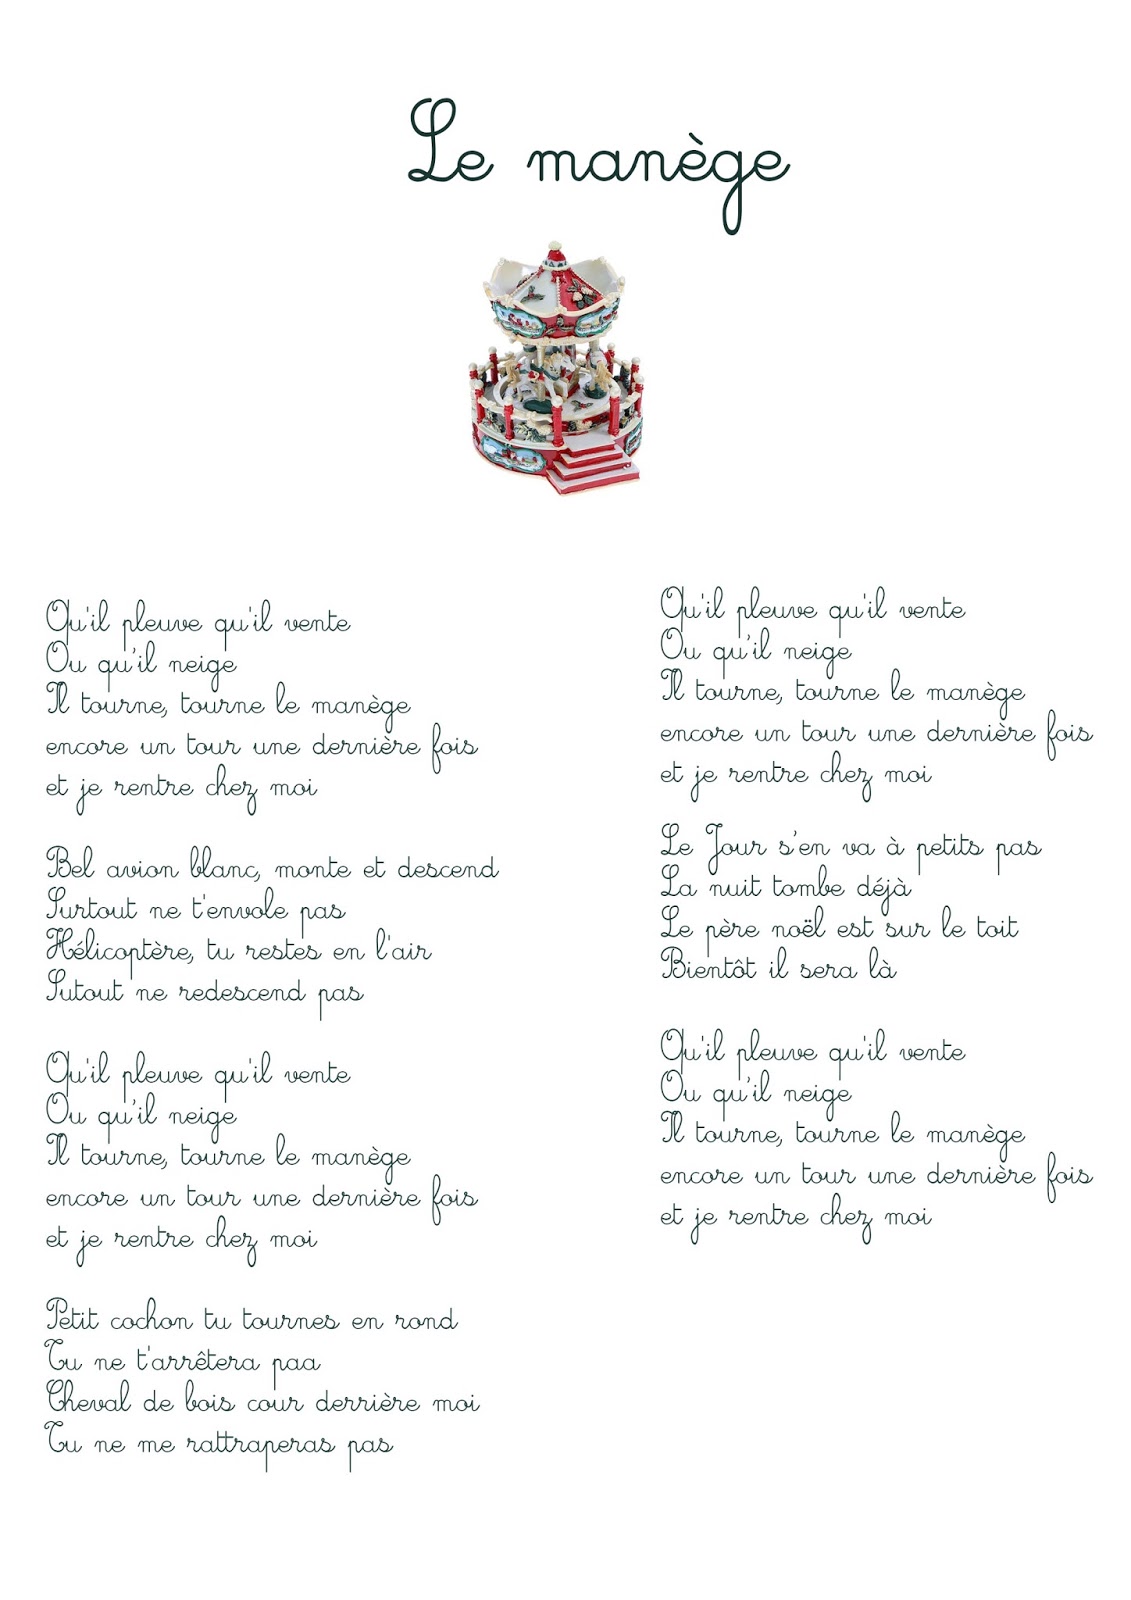 Le manège
Qu'il pleuve qu'il vente
Ou qu'il neige
Il tourne, tourne le manège
encore un tour une dernière fois
et je rentre chez moi
Bel avion blanc, monte et descend
Surtout ne t'envole pas
Hélicoptère, tu restes en l'air
Sutout ne redescend pas
Qu'il pleuve qu'il vente
Ou qu'il neige
Il tourne, tourne le manège
encore un tour une dernière fois
et je rentre chez moi
Petit cochon tu tournes en rond
Tu ne t'arrêtera paa
Cheval de bois cour derrière moi
Tu ne me rattraperas pas
Qu'il pleuve qu'il vente
Ou qu'il neige
Il tourne, tourne le manège
encore un tour une dernière fois
et je rentre chez moi
Le Jour s'en va à petits pas
La nuit tombe déjà
Le père noël est sur le toit
Bientôt il sera là
Qu'il pleuve qu'il vente
Ou qu'il neige
Il tourne, tourne le manège
encore un tour une dernière fois
et je rentre chez moi